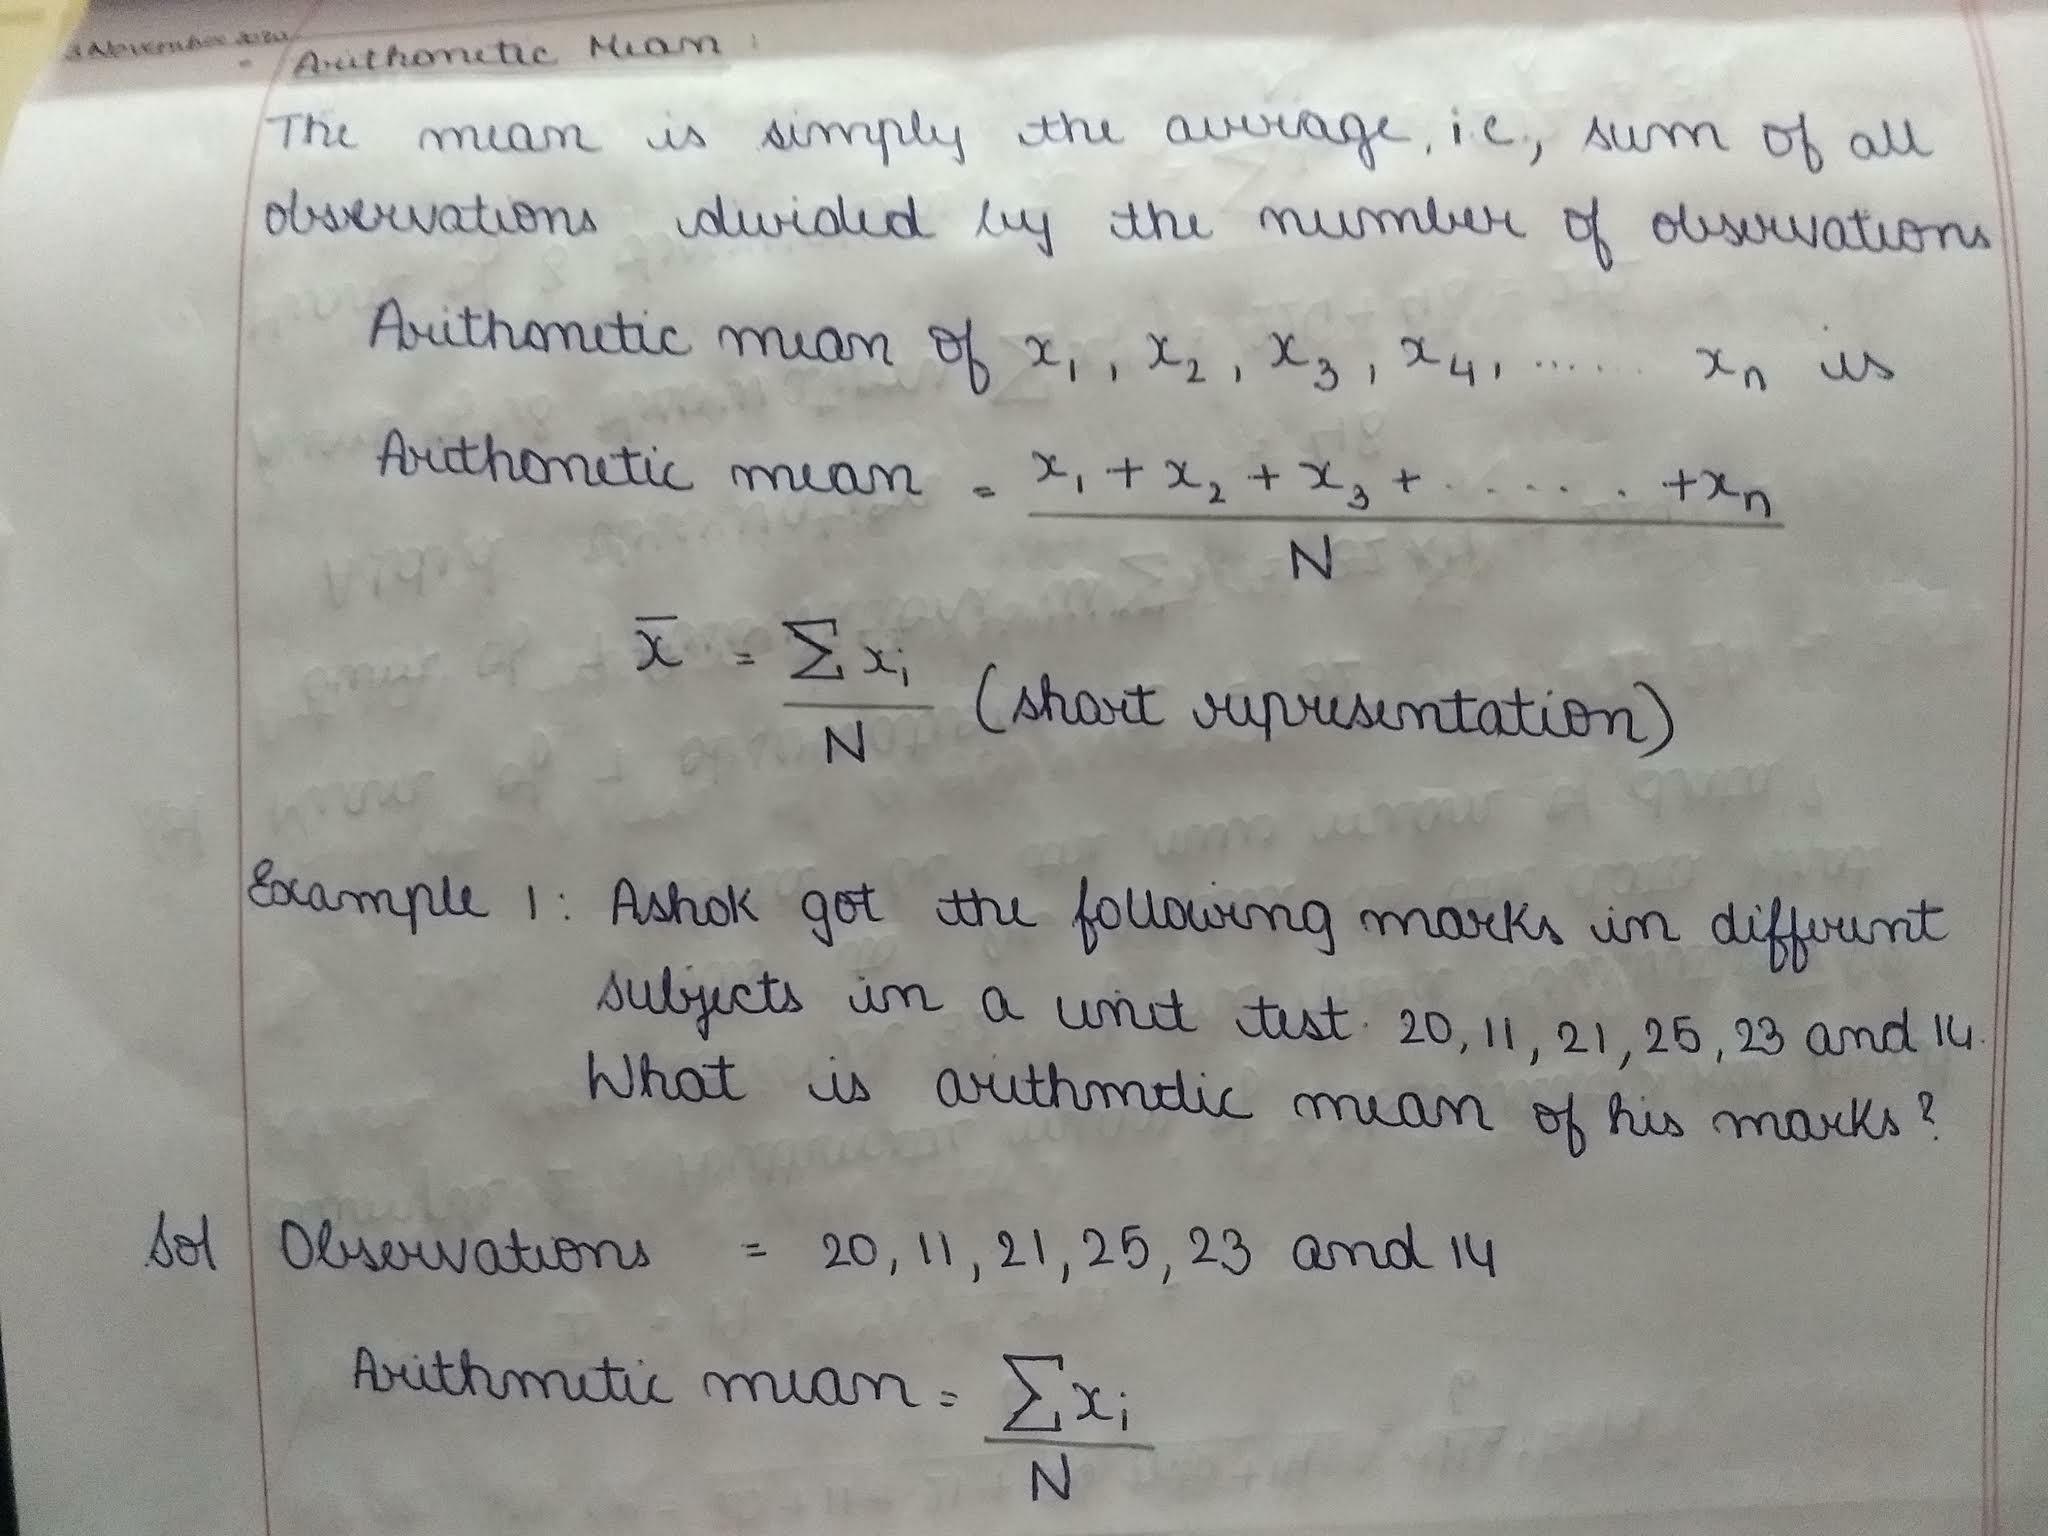 November
Arithmetic Mean :
The mean is simply the average, i.e, sum of all
observations divided by the number of observations
Arithmetic mean of x₁, x₂, x₃, x₄, ...... xₙ is
Arithmetic mean = x₁ + x₂ + x₃ + ...... + xₙ
N
x̄ = Σxᵢ (short representation)
N
Example 1: Ashok got the following marks in different
subjects in a unit test. 20, 11, 21, 25, 23 and 14.
What is arithmetic mean of his marks?
Sol Observations = 20, 11, 21, 25, 23 and 14
Arithmetic mean = Σxᵢ
N